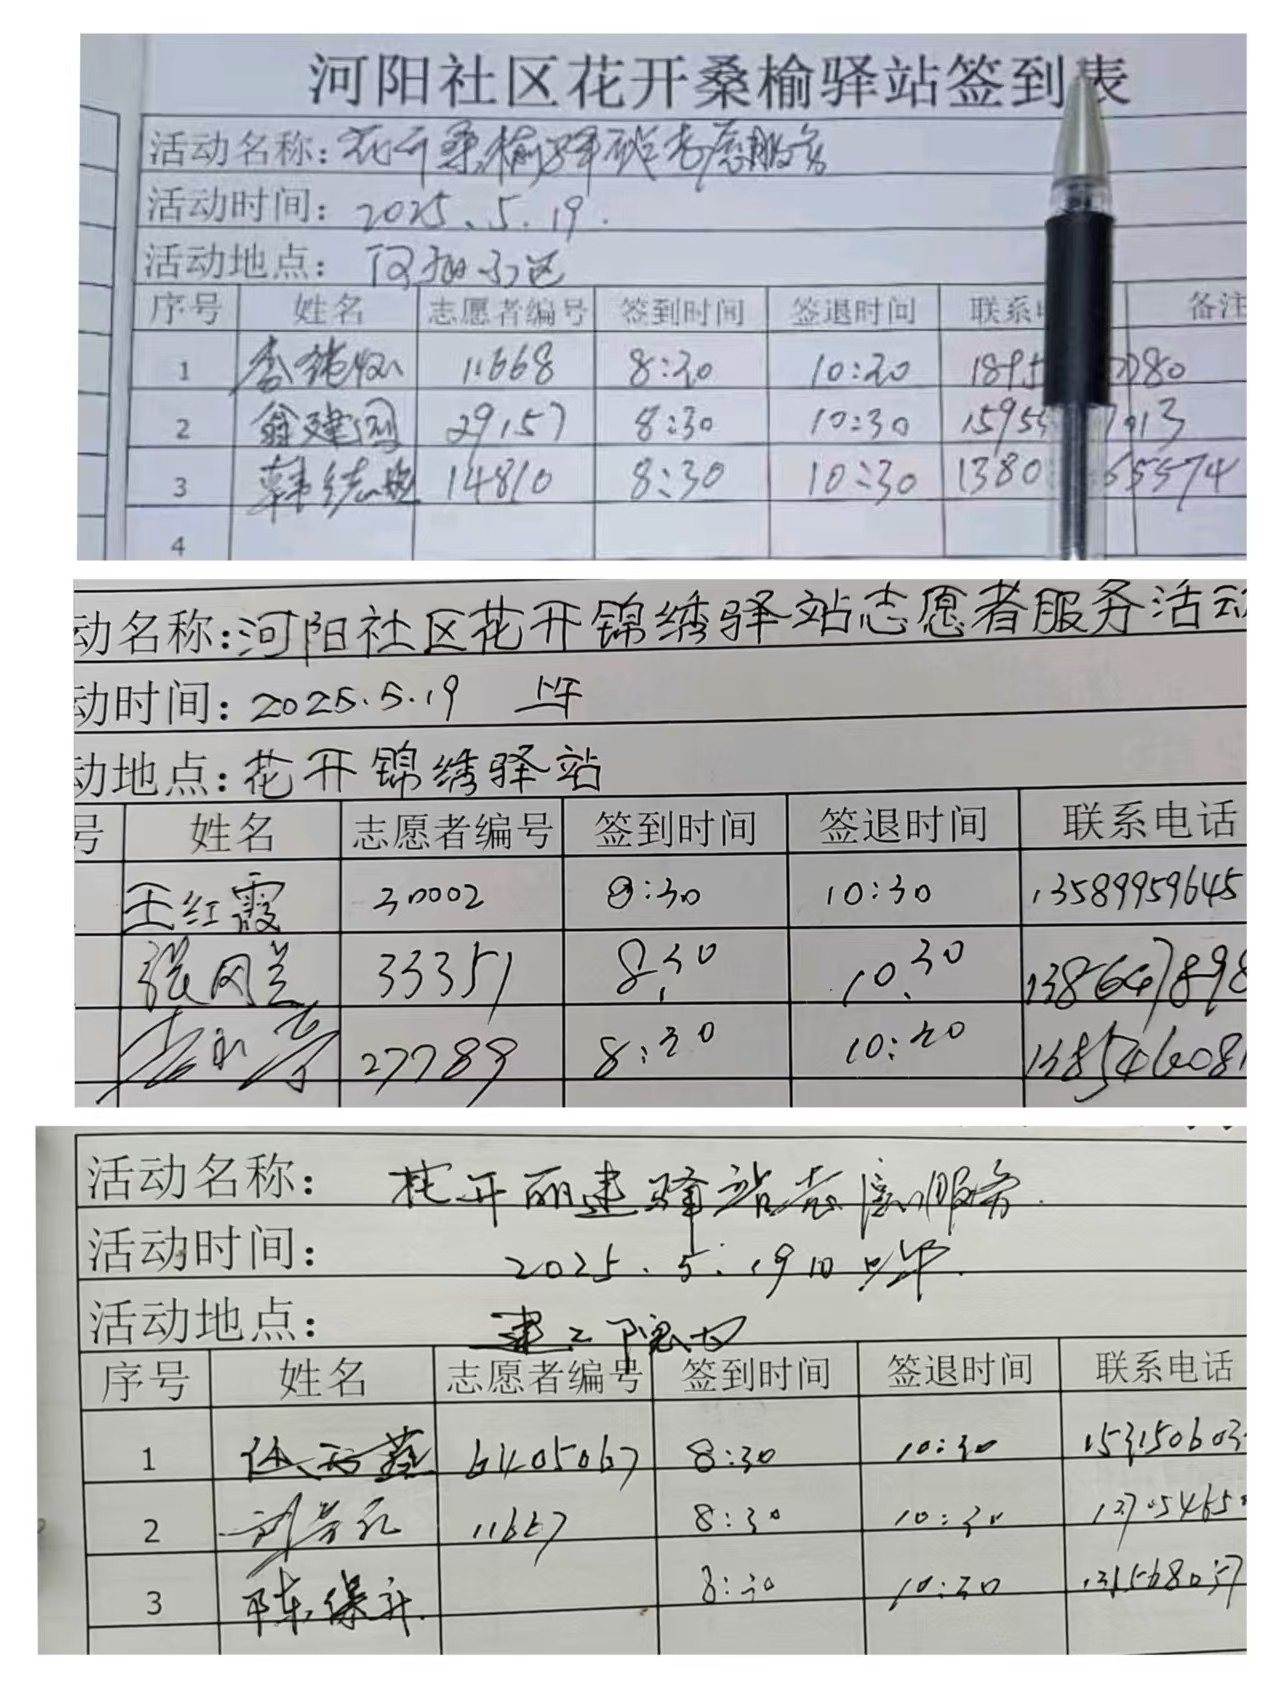 河阳社区花开桑榆驿站签到表
活动名称：花开桑榆驿站志愿服务
活动时间：2025.5.19.
活动地点：河阳小区
序号 姓名 志愿者编号 签到时间 签退时间 联系 备注
1 11668 8:30 10:30 1895 080
2 翁建国 29157 8:30 10:30 15955 7013
3 韩 14810 8:30 10:30 1380 65574
4
动名称：河阳社区花开锦绣驿站志愿者服务活动
动时间：2025.5.19 上午
动地点：花开锦绣驿站
号 姓名 志愿者编号 签到时间 签退时间 联系电话
王红霞 30002 8:30 10:30 13589959645
张风兰 33351 8:30 10:30 138647898
27789 8:30 10:30 1385460081
活动名称：花开丽建驿站志愿服务.
活动时间：2025.5.19日 上午.
活动地点：建工院内
序号 姓名 志愿者编号 签到时间 签退时间 联系电话
1 6405067 8:30 10:30 153150603
2 刘 11667 8:30 10:30 13705465
3 陈保升. 8:30 10:30 131568057